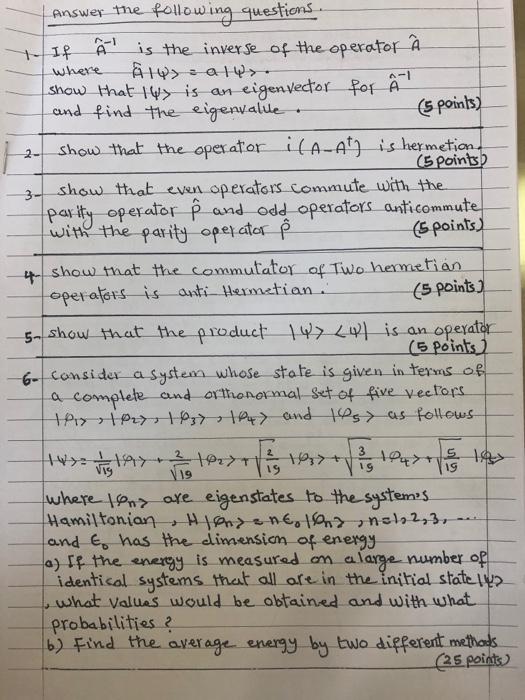 Answer the following questions.
1- If Â⁻¹ is the inverse of the operator Â
where Â|ψ> = a|ψ>.
show that |ψ> is an eigenvector for Â⁻¹
and find the eigenvalue. (5 points)
2- show that the operator i(A-A†) is hermetion. (5 points)
3- show that even operators commute with the
parity operator P̂ and odd operators anticommute
with the parity operator P̂ (5 points)
4- show that the commutator of Two hermetian
operators is anti-Hermetian. (5 points)
5- show that the product |ψ> <ψ| is an operator
(5 points)
6- consider a system whose state is given in terms of
a complete and orthonormal set of five vectors
|φ₁>, |φ₂>, |φ₃>, |φ₄> and |φ₅> as follows
|ψ> = 1/√19 |φ₁> + 2/√19 |φ₂> + √(2/19) |φ₃> + √(3/19) |φ₄> + √(5/19) |φ₅>
where |φₙ> are eigenstates to the system's
Hamiltonian, H|φₙ> = nϵ₀|φₙ>, n=1,2,3,...
and ϵ₀ has the dimension of energy
a) If the energy is measured on a large number of
identical systems that all are in the initial state |ψ>
, what values would be obtained and with what
probabilities?
b) Find the average energy by two different methods
(25 points)